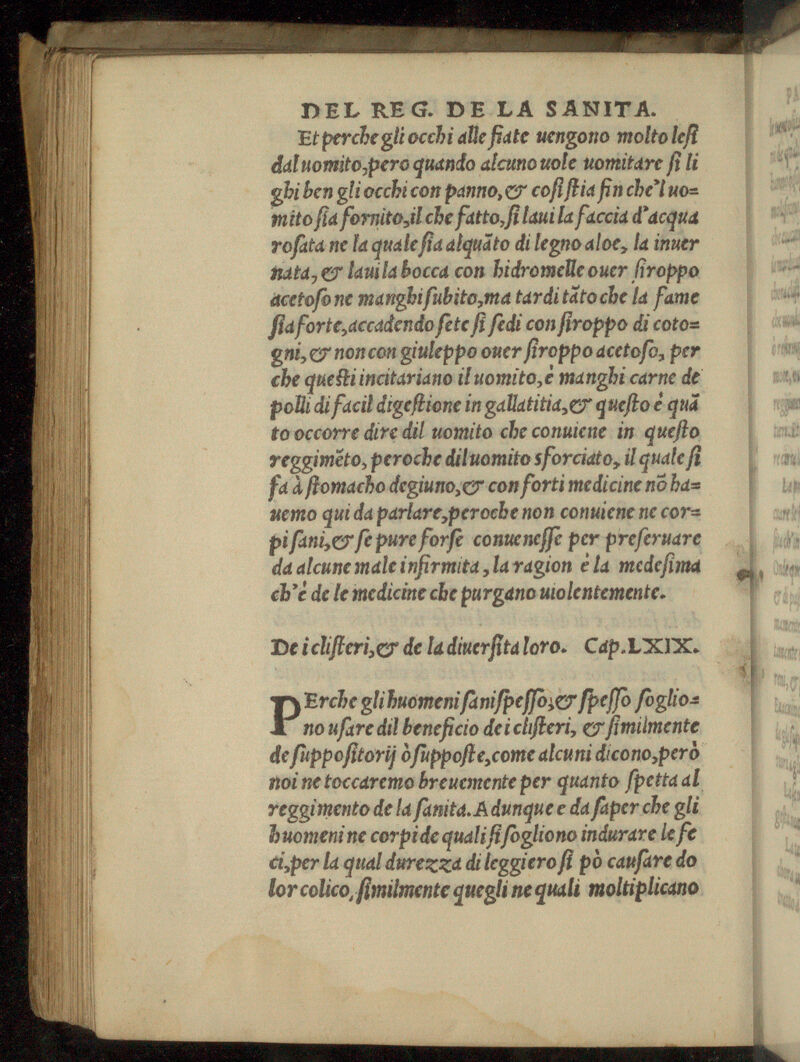 DEL REG. DE LA SANITA.
Et perche gli occhi alle fiate uengono molto lesi
dal uomito, pero quando alcuno uole uomitare si li
ghi ben gli occhi con panno, & cosi stia fin che'l uo=
mito sia fornito, il che fatto, si laui la faccia d'acqua
rosata ne la quale sia alquãto di legno aloe, la inuer
nata, & laui la bocca con hidromelle ouer siroppo
acetoso ne manghi subito, ma tardi tãto che la fame
sia forte, accadendo sete si sedi con siroppo di coto=
gni, & non con giuleppo ouer siroppo acetoso, per
che questi incitariano il uomito, è manghi carne de
polli di facil digestione in gallatitia, & questo è quã
to occorre dire dil uomito che conuiene in questo
reggimẽto, peroche dil uomito sforciato, il quale si
fa à stomacho degiuno, & con forti medicine nõ ha=
uemo qui da parlare, peroche non conuiene ne cor=
pi sani, & se pure forse conuenesse per preseruare
da alcune male infirmita, la ragion è la medesima
ch'è de le medicine che purgano uiolentemente.
De i clisteri, & de la diuersita loro. Cap. LXIX.
PErche gli huomeni sani spesso, & spesso soglio=
no usare dil beneficio de i clisteri, & similmente
de suppositorij ò supposte, come alcuni dicono, però
noi ne toccaremo breuemente per quanto spetta al
reggimento de la sanita. Adunque e da saper che gli
huomeni ne corpi de quali si sogliono indurare le fe
ci, per la qual durezza di leggiero si pò causare do
lor colico, similmente quegli ne quali moltiplicano